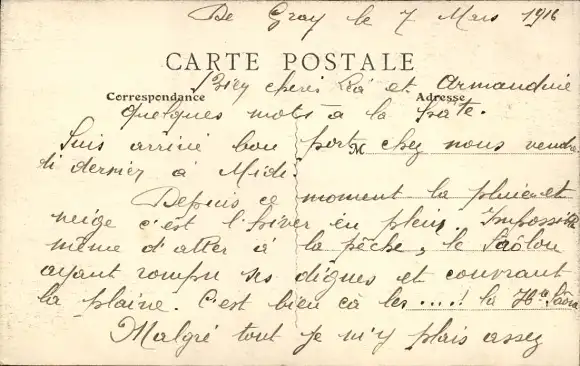 De Gray le 7 Mars 1916
CARTE POSTALE
Bien chers Léa et Armandine
Correspondance Adresse
Quelques mots à la hâte.
Suis arrivé bon port chez nous vendre
M
di dernier à Midi.
Depuis ce moment la pluie et
neige c'est l'hiver en plein. Impossible
même d'aller à la pêche, le Saôlon
ayant rompu ses digues et couvrant
la plaine. C'est bien ça les ....! la Hte Saône
Malgré tout je m'y plais assez